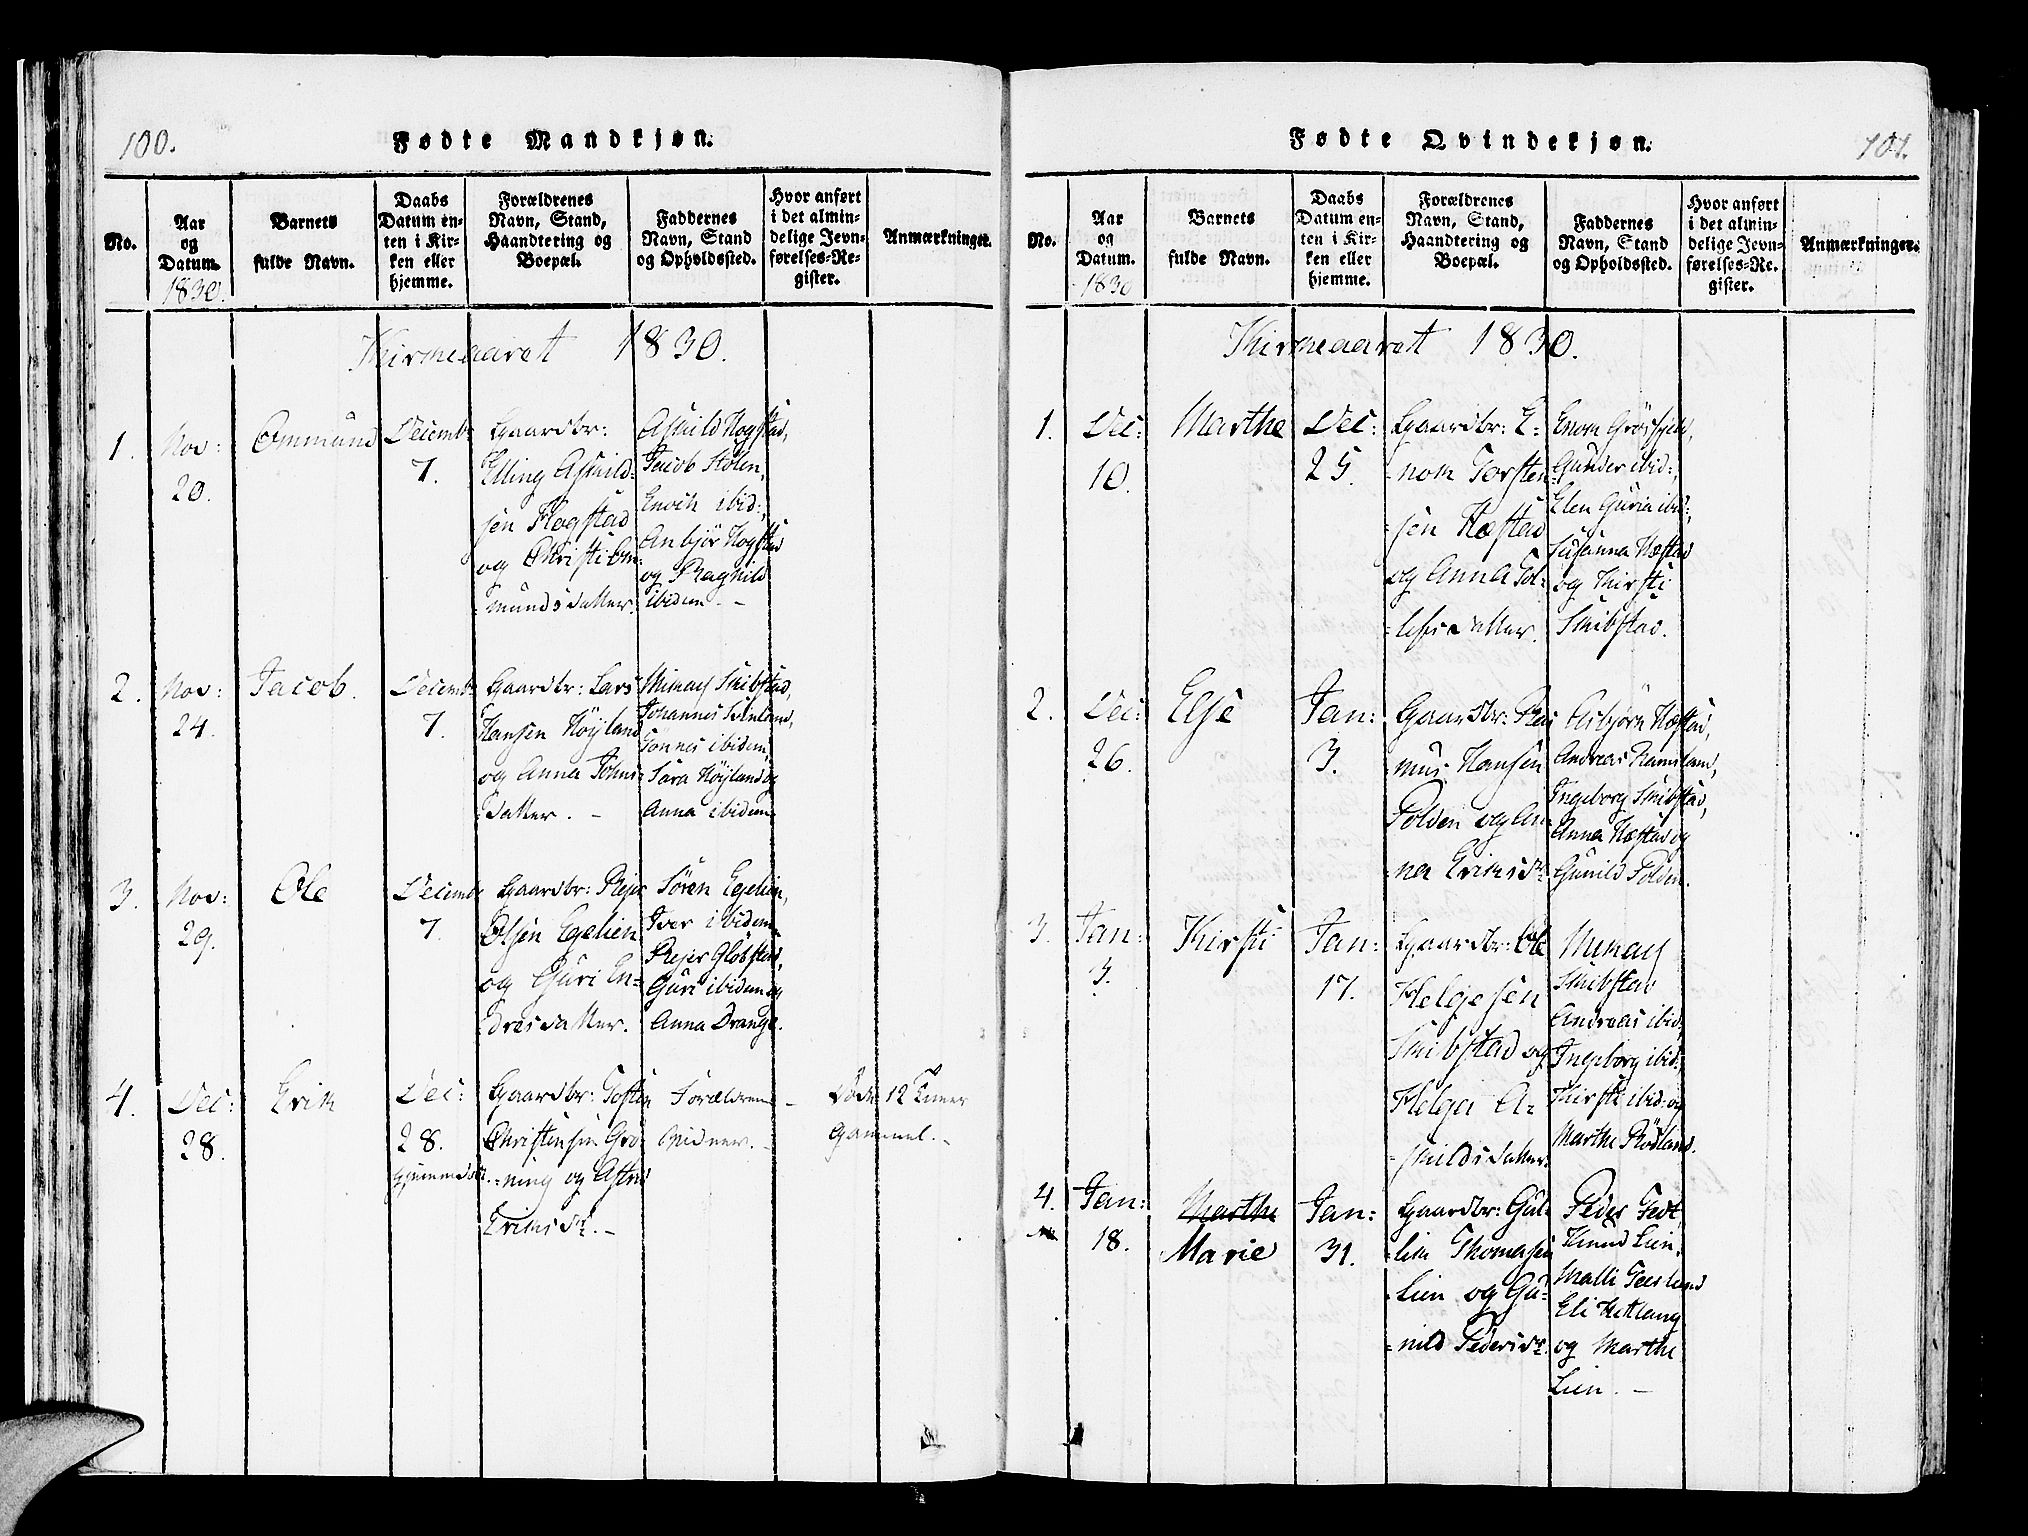 100.
Fødte Mandkjøn.
No.
Aar
og
Datum.
1830.
Barnets
fulde Navn.
Daabs
Datum en-
ten i Kir-
ken eller
hjemme.
Forældrenes
Navn, Stand,
Haandtering og
Boepæl.
Faddernes
Navn, Stand
og Opholdssted.
Hvor anført
i det almin-
delige Jevn-
førelses-Re-
gister.
Anmærkninger.
Kirkeaaret 1830.
1.
Nov:
20.
Ommund
Decemb:
7.
Gaardbr:
Elling Askild-
sen Hogstad
og Christi Om-
mundsdatter.
Askild Hogstad,
Jacob Stölen,
Enoch ibid:,
Anbjör Hogstad
og Ragnild
ibidem. -
2.
Nov:
24.
Jacob.
Decemb:
7.
Gaardbr: Lars
Hansen Höyland
og Anna Johns-
datter. -
Mikael Skibstad,
Johannes Svinland,
Tönnes ibidem,
Sara Höyland og
Anna ibidem.
3.
Nov:
29.
Ole
Decemb:
7.
Gaardbr: Rejer
Olsen Egelien
og Guri En-
dresdatter.
Sören Egelien,
Iver ibidem,
Rejer Glöbstad,
Guri ibidem og
Anna Drange.
4.
Dec:
28.
Erik
Dec:
28.
hjemmedöbt.
Gaardbr: Tosten
Christensen Grö-
ning og Astri
Eriksdr. -
Forældrene
Vidner. -
Döde 12 Timer
Gammel. -
101.
Fødte Qvindekjøn.
No.
Aar
og
Datum.
1830
Barnets
fulde Navn.
Daabs
Datum en-
ten i Kir-
ken eller
hjemme.
Forældrenes
Navn, Stand,
Haandtering og
Boepæl.
Faddernes
Navn, Stand
og Opholdssted.
Hvor anført
i det almin-
delige Jevn-
førelses-Re-
gister.
Anmærkninger.
Kirkeaaret 1830.
1.
Dec:
10.
Marthe
Dec:
25.
Gaardbr: E-
nok Torsten-
sen Hæstad
og Anna Tol-
lefsdatter.
Enok
Gunder ibid:,
Elen Guria ibid:,
Susanna Hæstad
og Kirsti
Skibstad.
2.
Dec:
26.
Else
Jan:
3.
Gaardbr: Ras
mus Hansen
Folden og An-
na Eriksdr.
Asbjörn Hæstad,
Andreas Ramsland,
Ingeborg Skibstad,
Anna Hæstad og
Gunild Folden.
3.
Jan:
3.
Kirsti
Jan:
17.
Gaardbr: Ole
Helgesen
Skibstad og
Helga A-
skildsdatter.
Mikael
Skibstad
Andreas ibid:,
Ingeborg ibid:,
Kirsti ibid: og
Marthe Rödland.
4.
Jan:
18.
Marthe
Marie
Jan:
31.
Gaardbr: Gul-
lik Thomesen
Lien og Gu-
nild Pedersdr.
Peder Tvet,
Knud Lien,
Malli
Eli Hetland
og Marthe
Lien. -